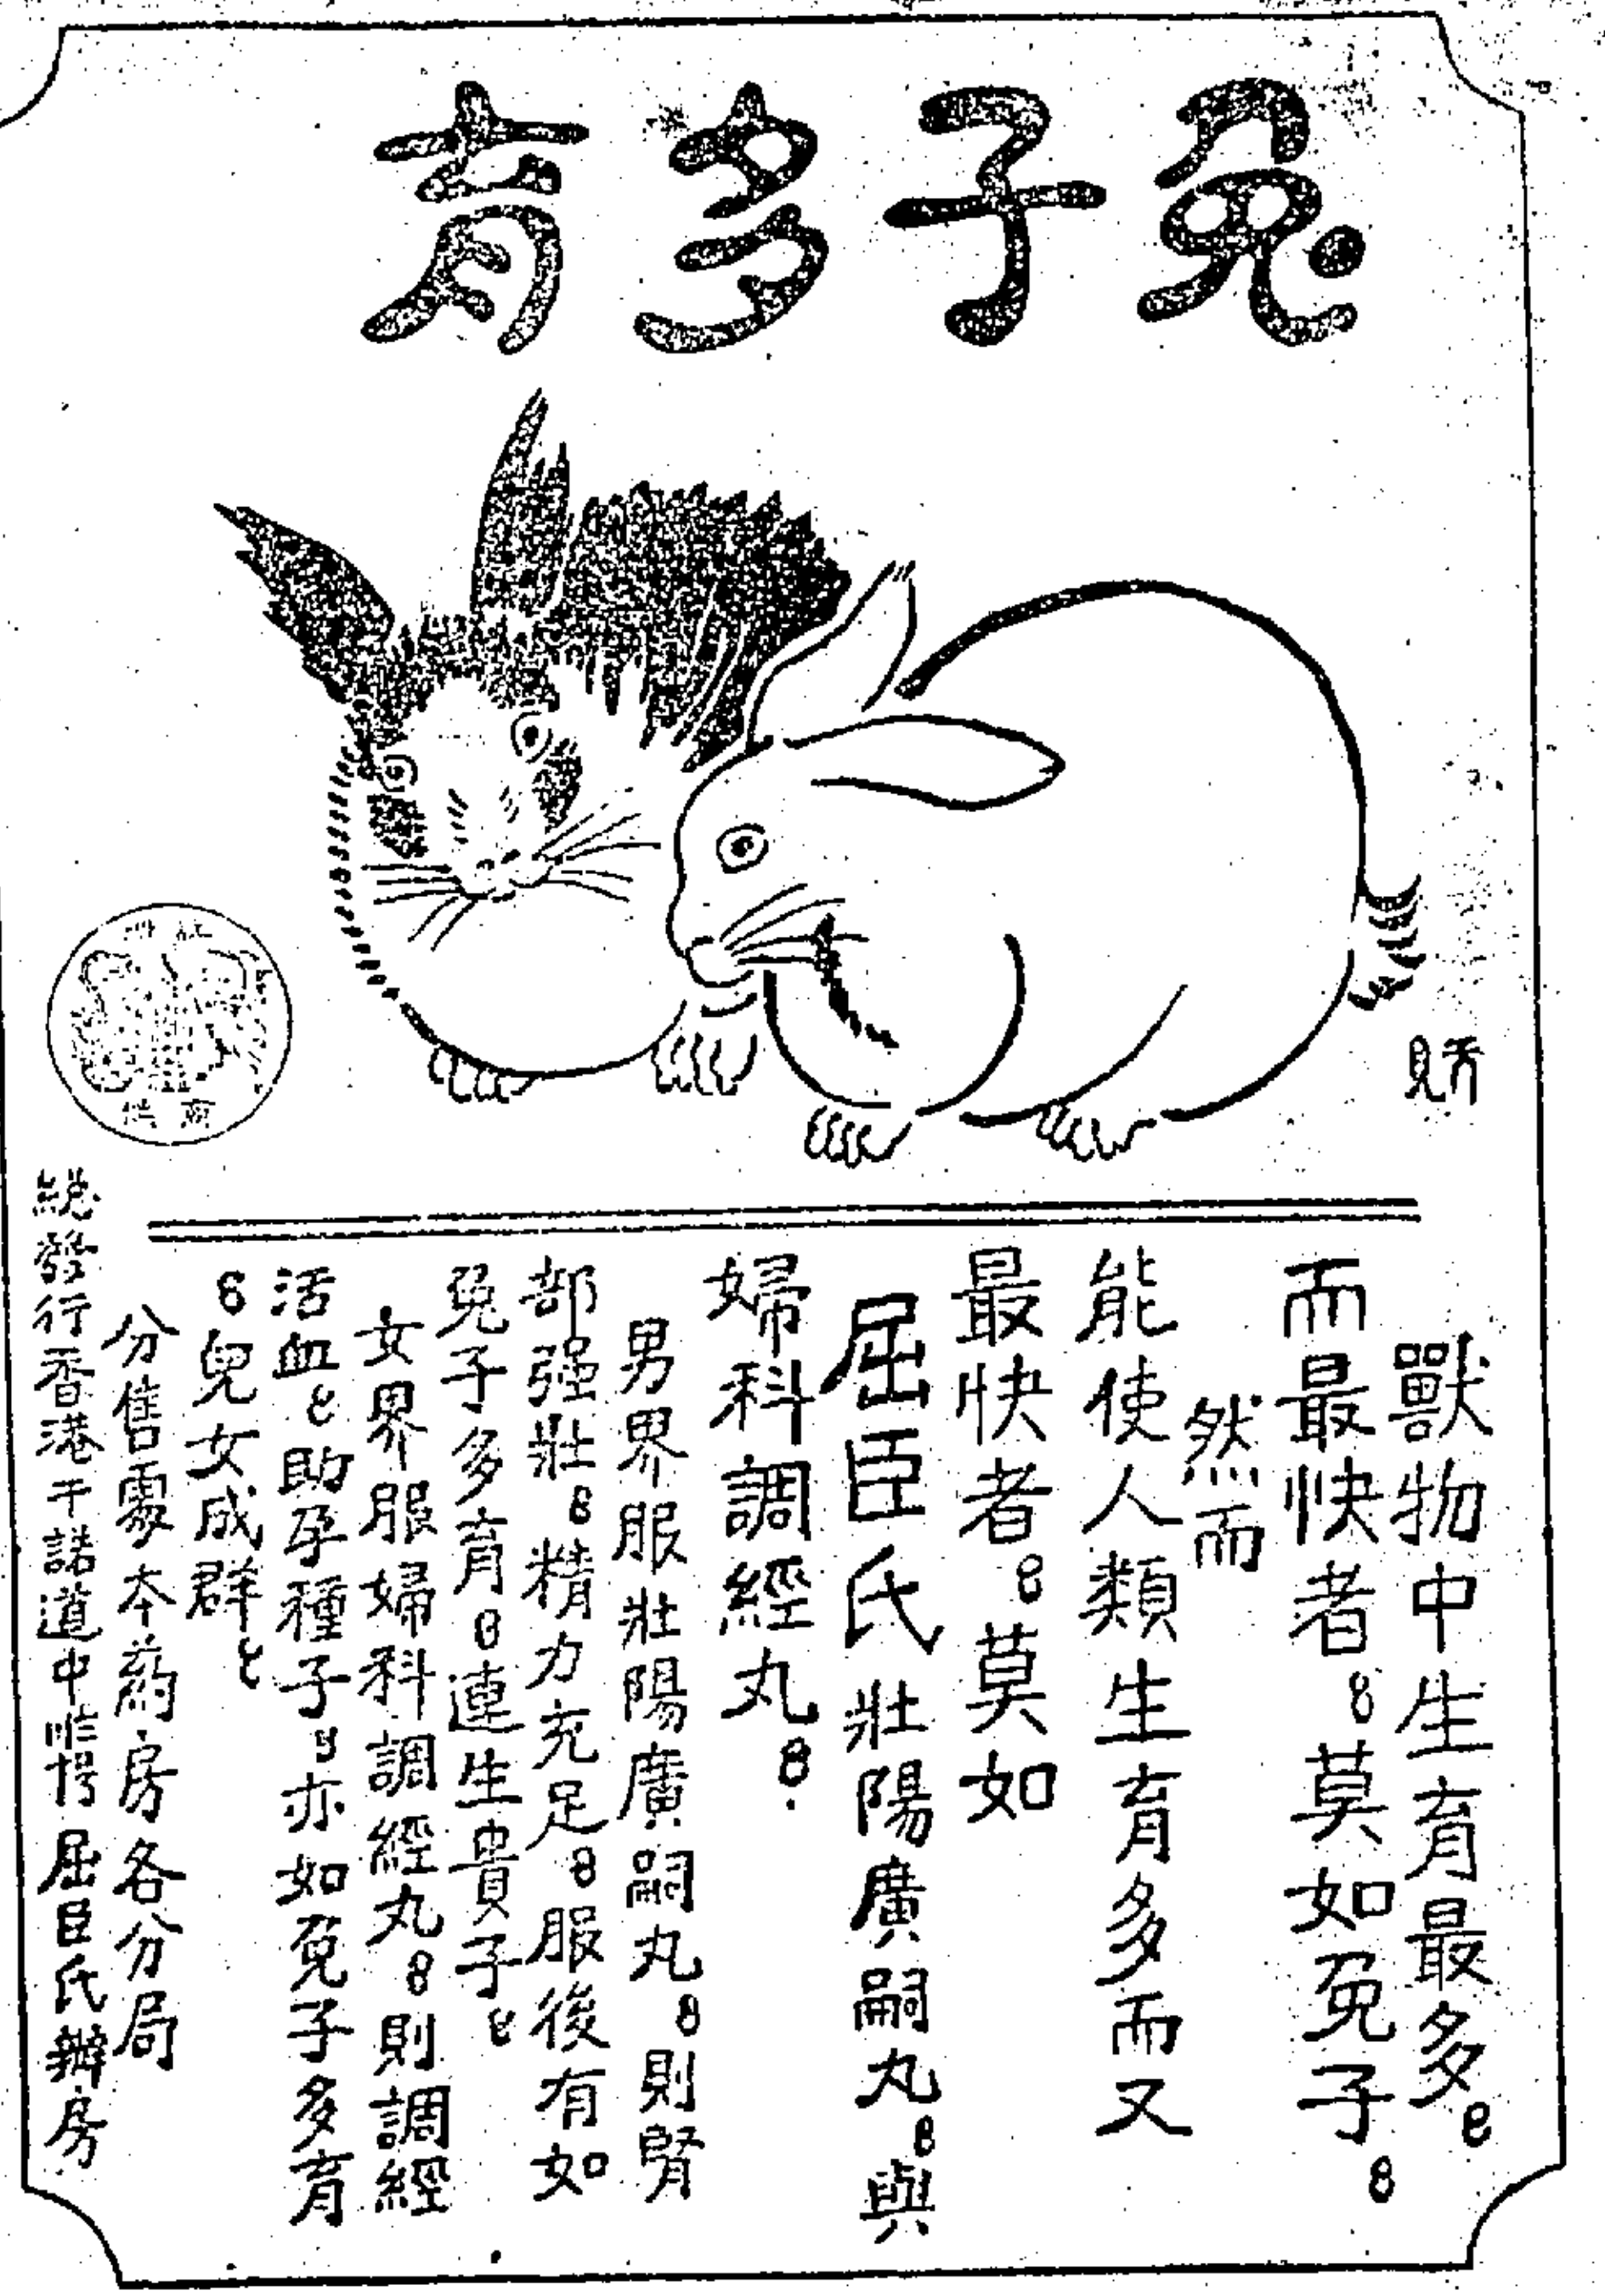 兔子多育
獸物中生育最多。
而最快者。莫如兔子。
然而
能使人類生育多而又
最快者。莫如
屈臣氏壯陽廣嗣丸。與
婦科調經丸。
男界服壯陽廣嗣丸。則腎
部强壯。精力充足。服後有如
兔子多育。連生貴子。
女界服婦科調經丸。則調經
活血。助孕種子。亦如兔子多育
。兒女成群。
分售處本葯房各分局
總發行香港干諾道中 屈臣氏辦房